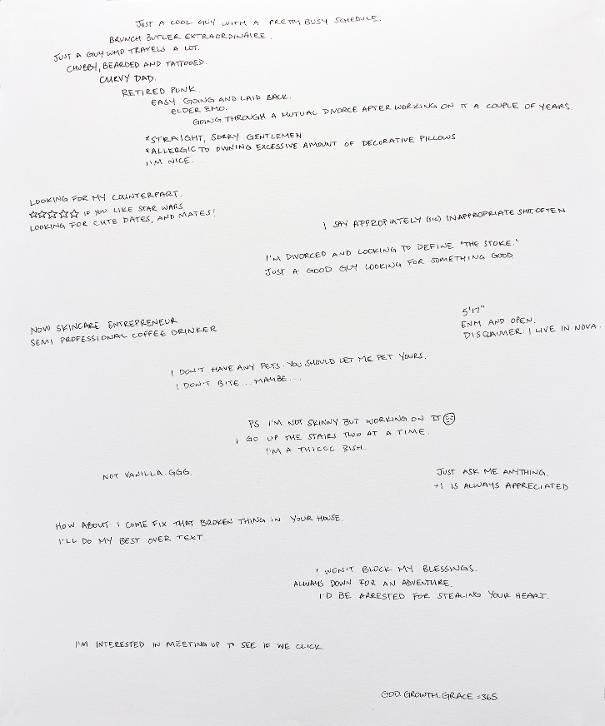 JUST A COOL GUY WITH A PRETTY BUSY SCHEDULE.
BRUNCH BUTLER EXTRAORDINAIRE.
JUST A GUY WHO TRAVELS A LOT.
CHUBBY, BEARDED AND TATTOOED.
CURVY DAD.
RETIRED PUNK.
EASY GOING AND LAID BACK.
ELDER EMO.
GOING THROUGH A MUTUAL DIVORCE AFTER WORKING ON IT A COUPLE OF YEARS.
*STRAIGHT, SORRY GENTLEMEN
*ALLERGIC TO OWNING EXCESSIVE AMOUNT OF DECORATIVE PILLOWS
I'M NICE.
LOOKING FOR MY COUNTERPART.
☆☆☆☆☆ IF YOU LIKE STAR WARS
LOOKING FOR CUTE DATES, AND MATES!
I SAY APPROPIATELY (SIC) INAPPROPRIATE SHIT, OFTEN
I'M DIVORCED AND LOOKING TO DEFINE 'THE STOKE.'
JUST A GOOD GUY LOOKING FOR SOMETHING GOOD
NOW SKINCARE ENTREPRENEUR
SEMI PROFESSIONAL COFFEE DRINKER
5'17"
ENM AND OPEN.
DISCLAIMER: I LIVE IN NOVA.
I DON'T HAVE ANY PETS. YOU SHOULD LET ME PET YOURS.
I DON'T BITE... MAYBE...
PS I'M NOT SKINNY BUT WORKING ON IT ☹
I GO UP THE STAIRS TWO AT A TIME.
I'M A THICCC BISH.
NOT VANILLA. GGG.
JUST ASK ME ANYTHING.
+1 IS ALWAYS APPRECIATED
HOW ABOUT I COME FIX THAT BROKEN THING IN YOUR HOUSE.
I'LL DO MY BEST OVER TEXT
I WON'T BLOCK MY BLESSINGS.
ALWAYS DOWN FOR AN ADVENTURE.
I'D BE ARRESTED FOR STEALING YOUR HEART.
I'M INTERESTED IN MEETING UP TO SEE IF WE CLICK
GOD.GROWTH.GRACE=365